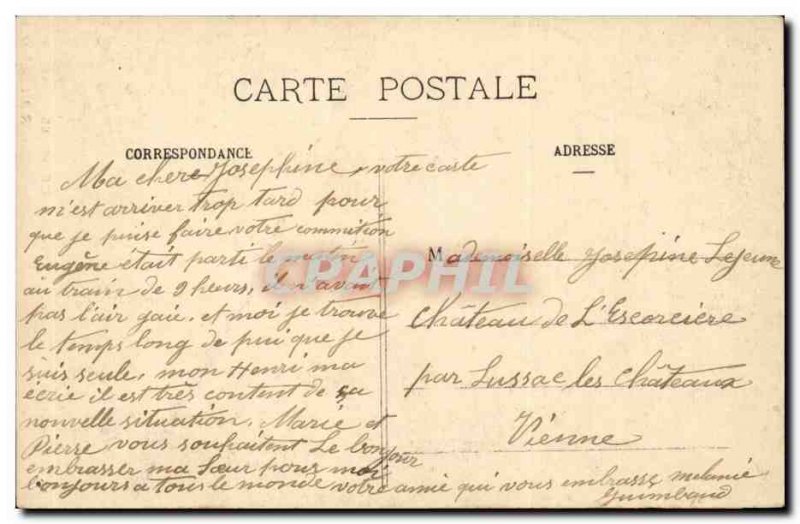 CARTE POSTALE
CORRESPONDANCE
ADRESSE
Ma chere Josephine, votre carte
m'est arriver trop tard pour
que je puise faire votre commition
Eugène était parti le matin
au train de 9 heurs, il n'avait
pas l'air gaie, et moi je trouve
le temps long de pui que je
suis seule, mon Henri ma
écrie il est très content de sa
nouvelle situation, Marie et
Pierre vous souhaitent Le bonjour
embrasser ma Sœur pour moi
bonjours a tous le monde votre amie qui vous embrasse melanie
Guimbaud
Mademoiselle Josepine Lejeune
Château de L'Escorcière
par Lussac les Châteaux
Viénne
CPAPHIL